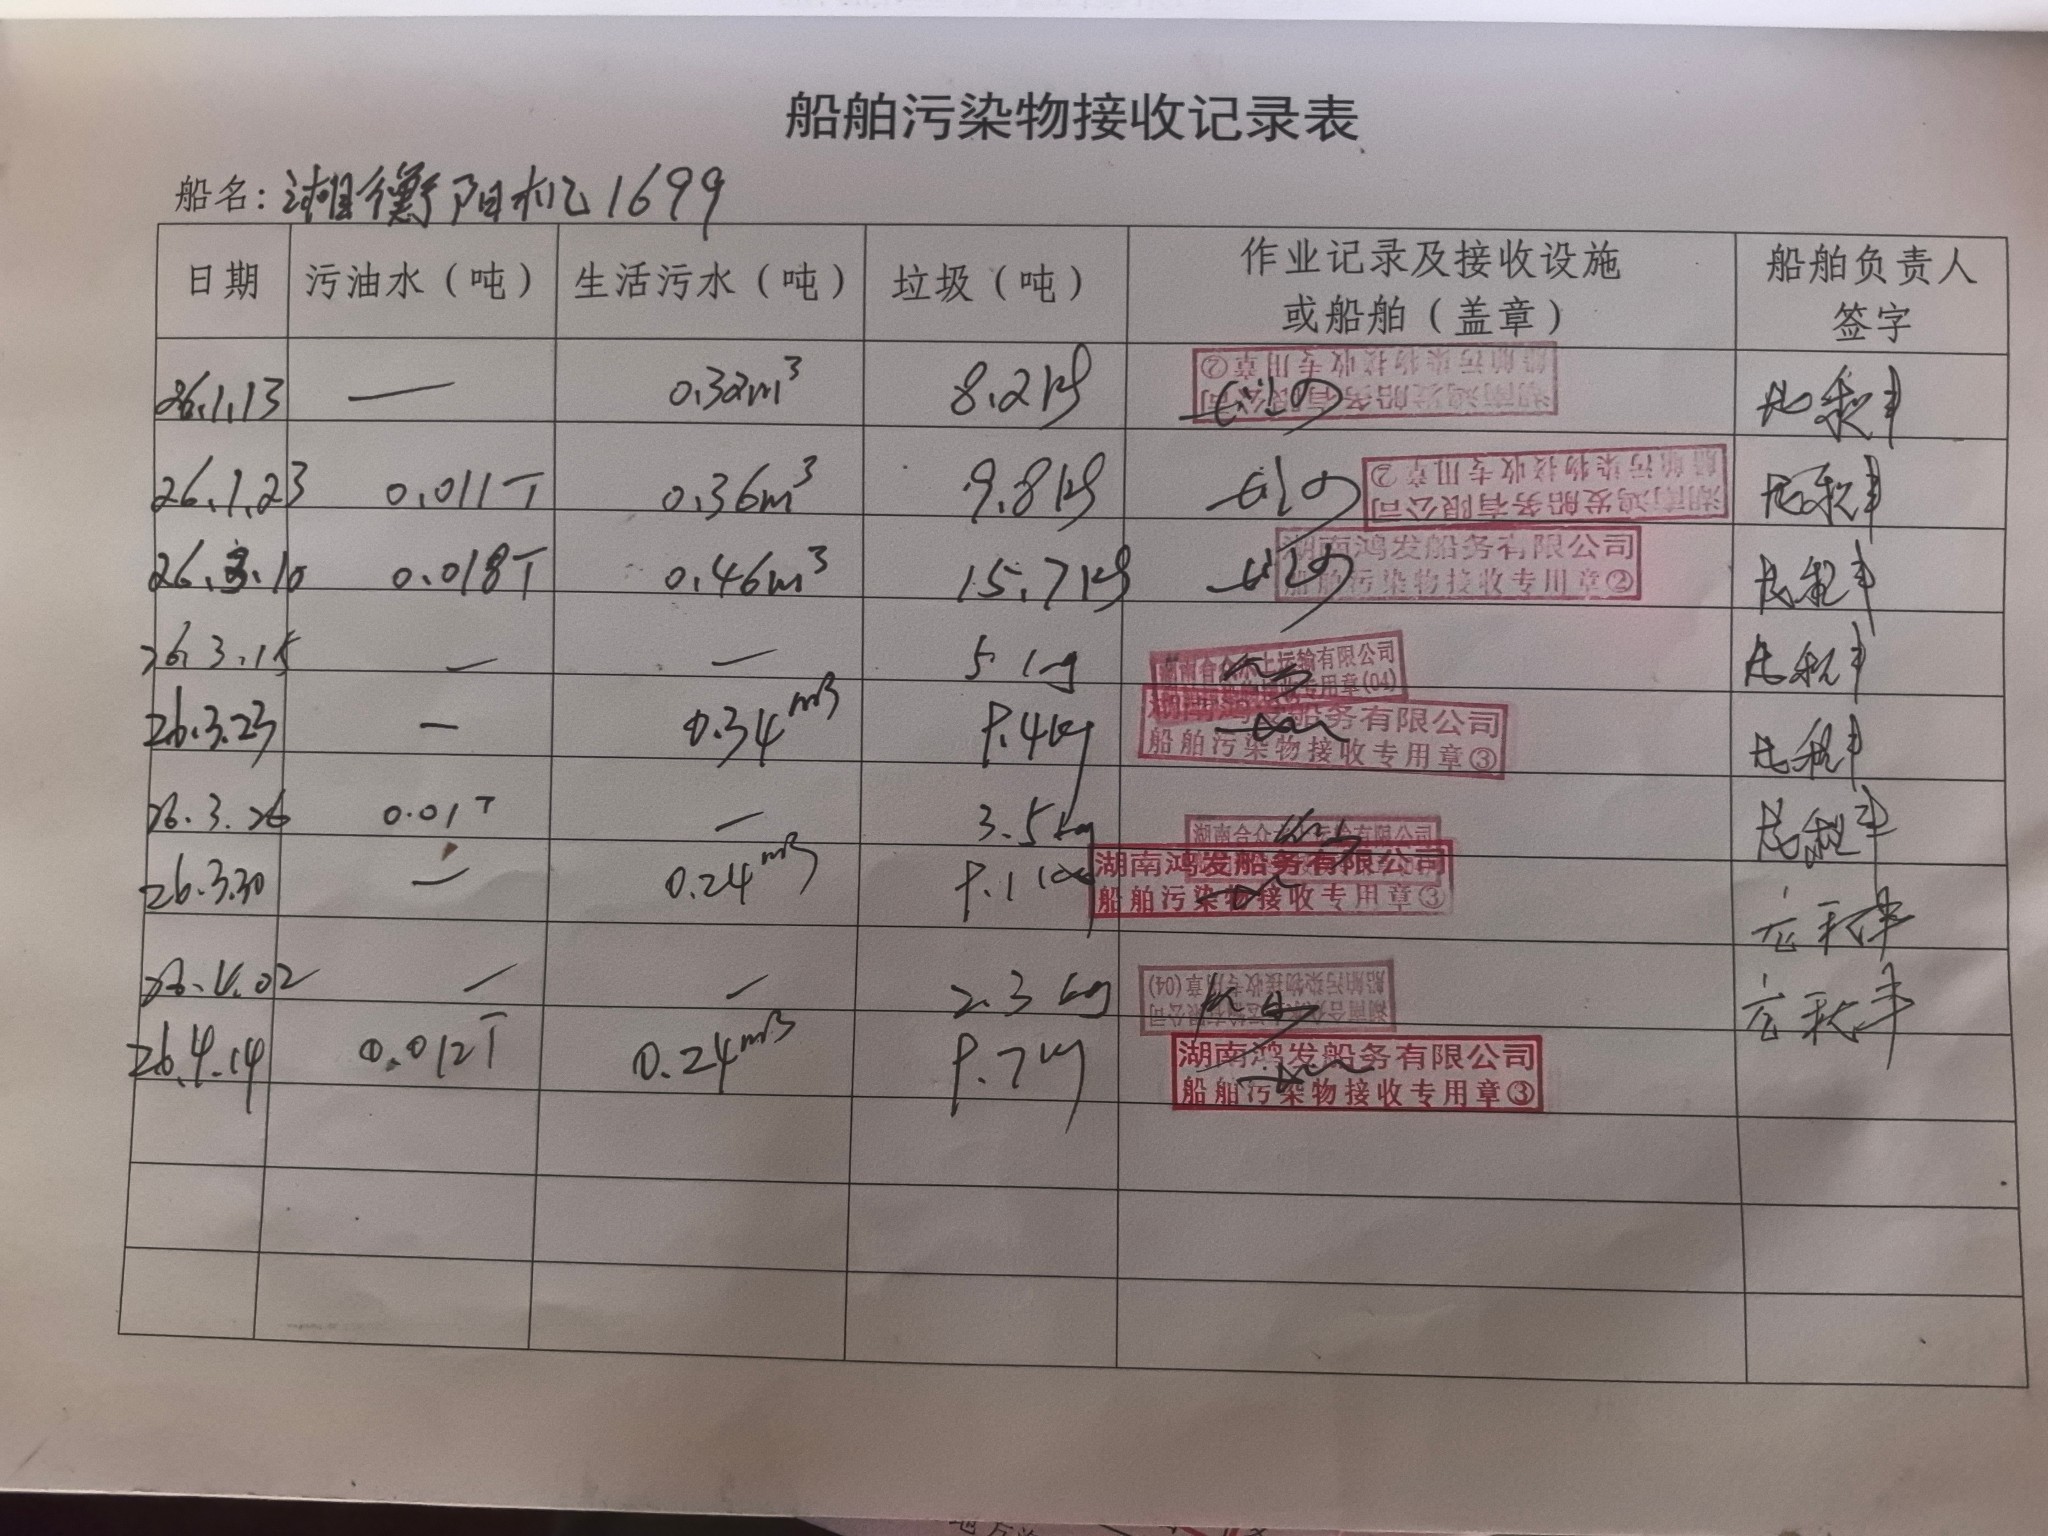 船舶污染物接收记录表
船名：湘衡阳机1699
日期 污油水（吨） 生活污水（吨） 垃圾（吨） 作业记录及接收设施或船舶（盖章） 船舶负责人签字
26.1.13 — 0.32m³ 8.2kg 湖南鸿发船务有限公司 船舶污染物接收专用章②
26.1.23 0.011T 0.36m³ 9.8kg 湖南鸿发船务有限公司 船舶污染物接收专用章②
26.3.10 0.018T 0.46m³ 15.7kg 湖南鸿发船务有限公司 船舶污染物接收专用章②
26.3.15 — — 5kg 湖南合众水上运输有限公司 专用章(04)
26.3.23 — 0.34m³ 9.4kg 湖南鸿发船务有限公司 船舶污染物接收专用章③
26.3.26 0.01T — 3.5kg 湖南合众 运输有限公司
26.3.30 — 0.24m³ 9.1kg 湖南鸿发船务有限公司 船舶污染物接收专用章③
26.4.02 — — 2.3kg 船舶污染物接收专用章(04)
26.4.14 0.012T 0.24m³ 9.7kg 湖南鸿发船务有限公司 船舶污染物接收专用章③